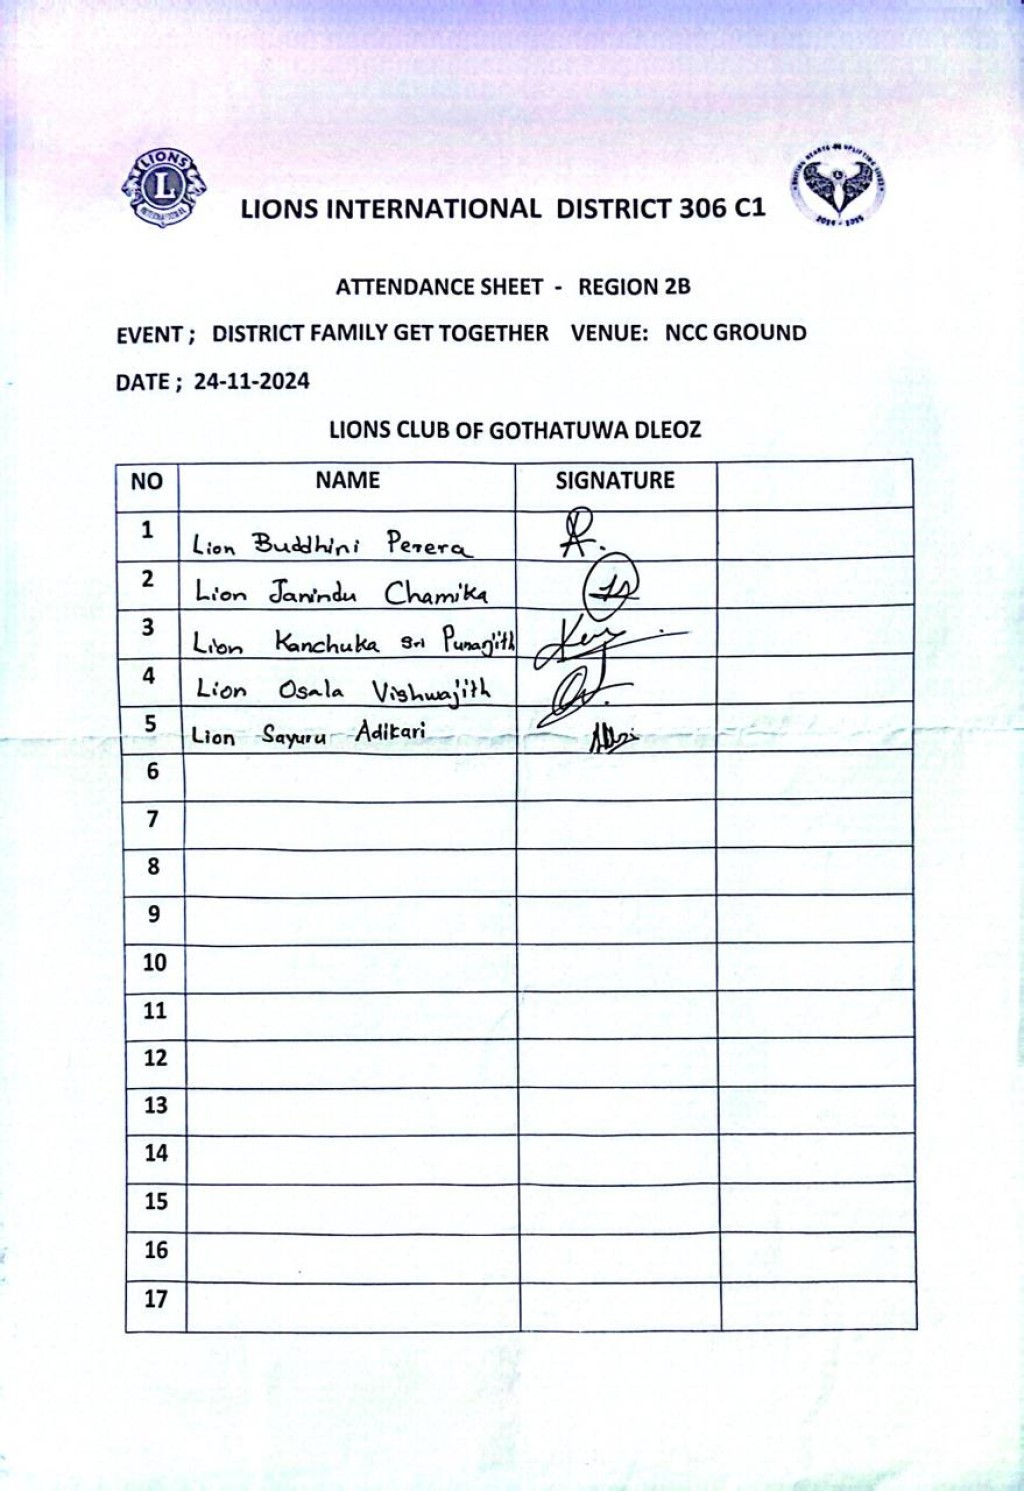 LIONS INTERNATIONAL
LIONS INTERNATIONAL DISTRICT 306 C1
2024 - 2025
ATTENDANCE SHEET - REGION 2B
EVENT ; DISTRICT FAMILY GET TOGETHER VENUE: NCC GROUND
DATE ; 24-11-2024
LIONS CLUB OF GOTHATUWA DLEOZ
NO NAME SIGNATURE
1 Lion Buddhini Perera
2 Lion Janindu Chamika
3 Lion Kanchuka Sri Punajith
4 Lion Osala Vishwajith
5 Lion Sayuru Adikari
6
7
8
9
10
11
12
13
14
15
16
17